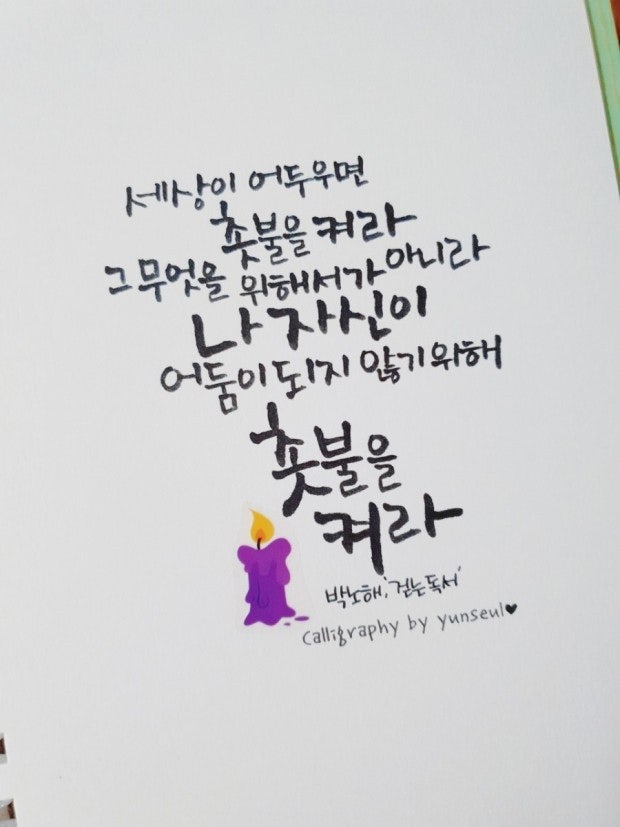 세상이 어두우면
촛불을 켜라
그 무엇을 위해서가 아니라
나 자신이
어둠이 되지 않기 위해
촛불을
켜라
박노해, '걷는 독서'
calligraphy by yunseul♥